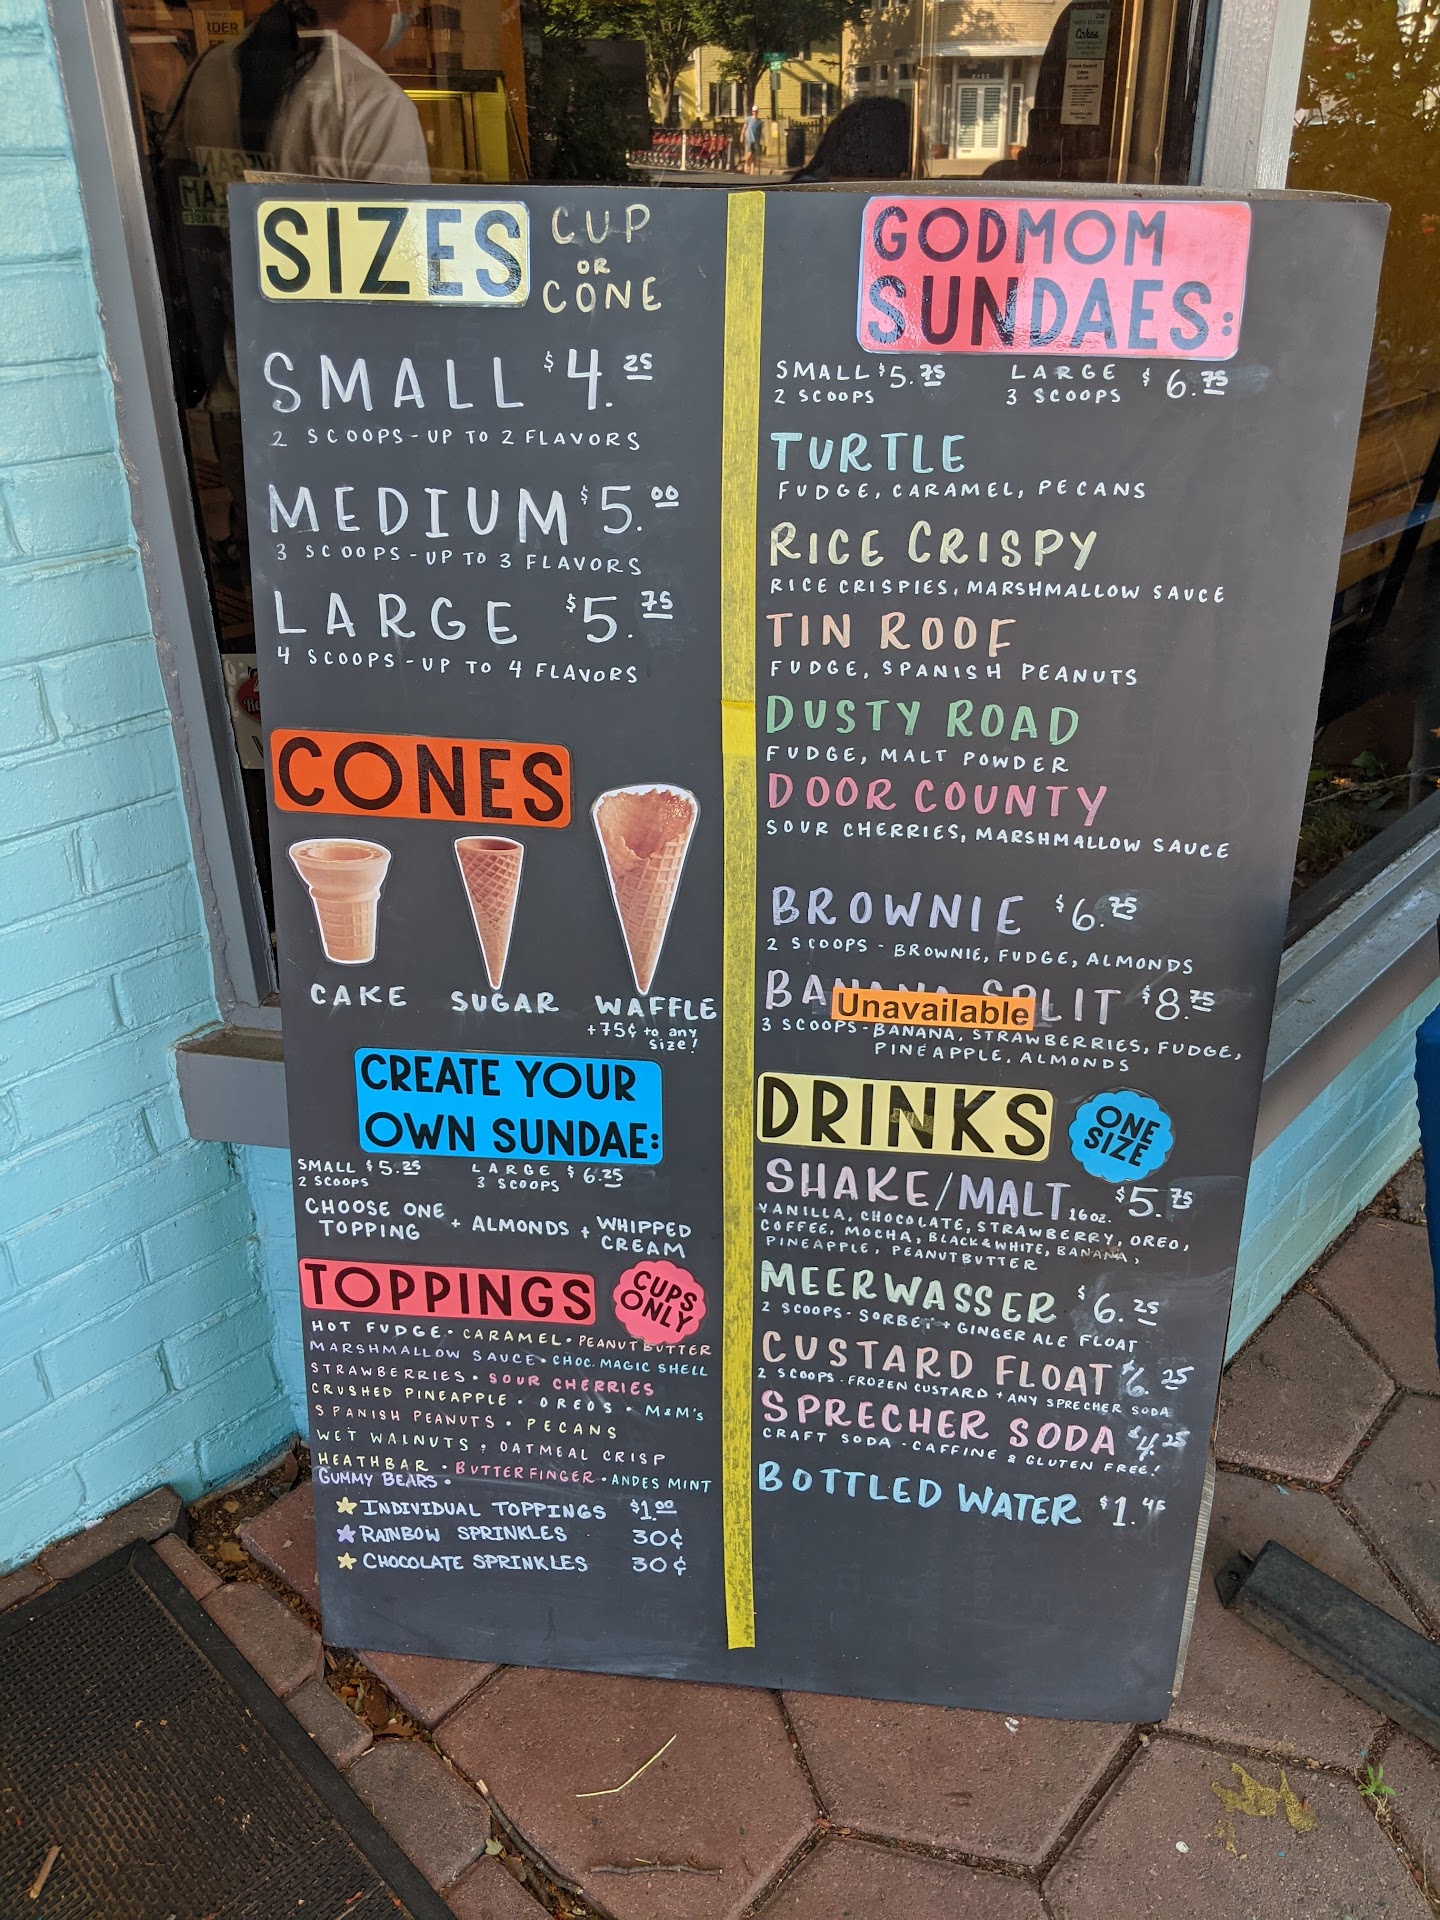 SIZES CUP OR CONE
SMALL $4.25
2 SCOOPS - UP TO 2 FLAVORS
MEDIUM $5.00
3 SCOOPS - UP TO 3 FLAVORS
LARGE $5.75
4 SCOOPS - UP TO 4 FLAVORS
CONES
CAKE SUGAR WAFFLE
+75¢ to any
size!
CREATE YOUR
OWN SUNDAE:
SMALL $5.25 LARGE $6.25
2 SCOOPS 3 SCOOPS
CHOOSE ONE TOPPING + ALMONDS + WHIPPED CREAM
TOPPINGS CUPS ONLY
HOT FUDGE • CARAMEL • PEANUT BUTTER
MARSHMALLOW SAUCE • CHOC. MAGIC SHELL
STRAWBERRIES • SOUR CHERRIES
CRUSHED PINEAPPLE • OREOS • M&M's
SPANISH PEANUTS • PECANS
WET WALNUTS • OATMEAL CRISP
HEATHBAR • BUTTERFINGER • ANDES MINT
GUMMY BEARS •
INDIVIDUAL TOPPINGS $1.00
RAINBOW SPRINKLES 30¢
CHOCOLATE SPRINKLES 30¢
GODMOM
SUNDAES:
SMALL $5.75 LARGE $6.75
2 SCOOPS 3 SCOOPS
TURTLE
FUDGE, CARAMEL, PECANS
RICE CRISPY
RICE CRISPIES, MARSHMALLOW SAUCE
TIN ROOF
FUDGE, SPANISH PEANUTS
DUSTY ROAD
FUDGE, MALT POWDER
DOOR COUNTY
SOUR CHERRIES, MARSHMALLOW SAUCE
BROWNIE $6.75
2 SCOOPS - BROWNIE, FUDGE, ALMONDS
BANANA SPLIT $8.75
Unavailable
3 SCOOPS - BANANA, STRAWBERRIES, FUDGE,
PINEAPPLE, ALMONDS
DRINKS ONE SIZE
SHAKE/MALT 16oz. $5.75
VANILLA, CHOCOLATE, STRAWBERRY, OREO,
COFFEE, MOCHA, BLACK & WHITE, BANANA,
PINEAPPLE, PEANUT BUTTER
MEERWASSER $6.25
2 SCOOPS - SORBET + GINGER ALE FLOAT
CUSTARD FLOAT $6.25
2 SCOOPS - FROZEN CUSTARD + ANY SPRECHER SODA
SPRECHER SODA $4.25
CRAFT SODA - CAFFINE & GLUTEN FREE!
BOTTLED WATER $1.45